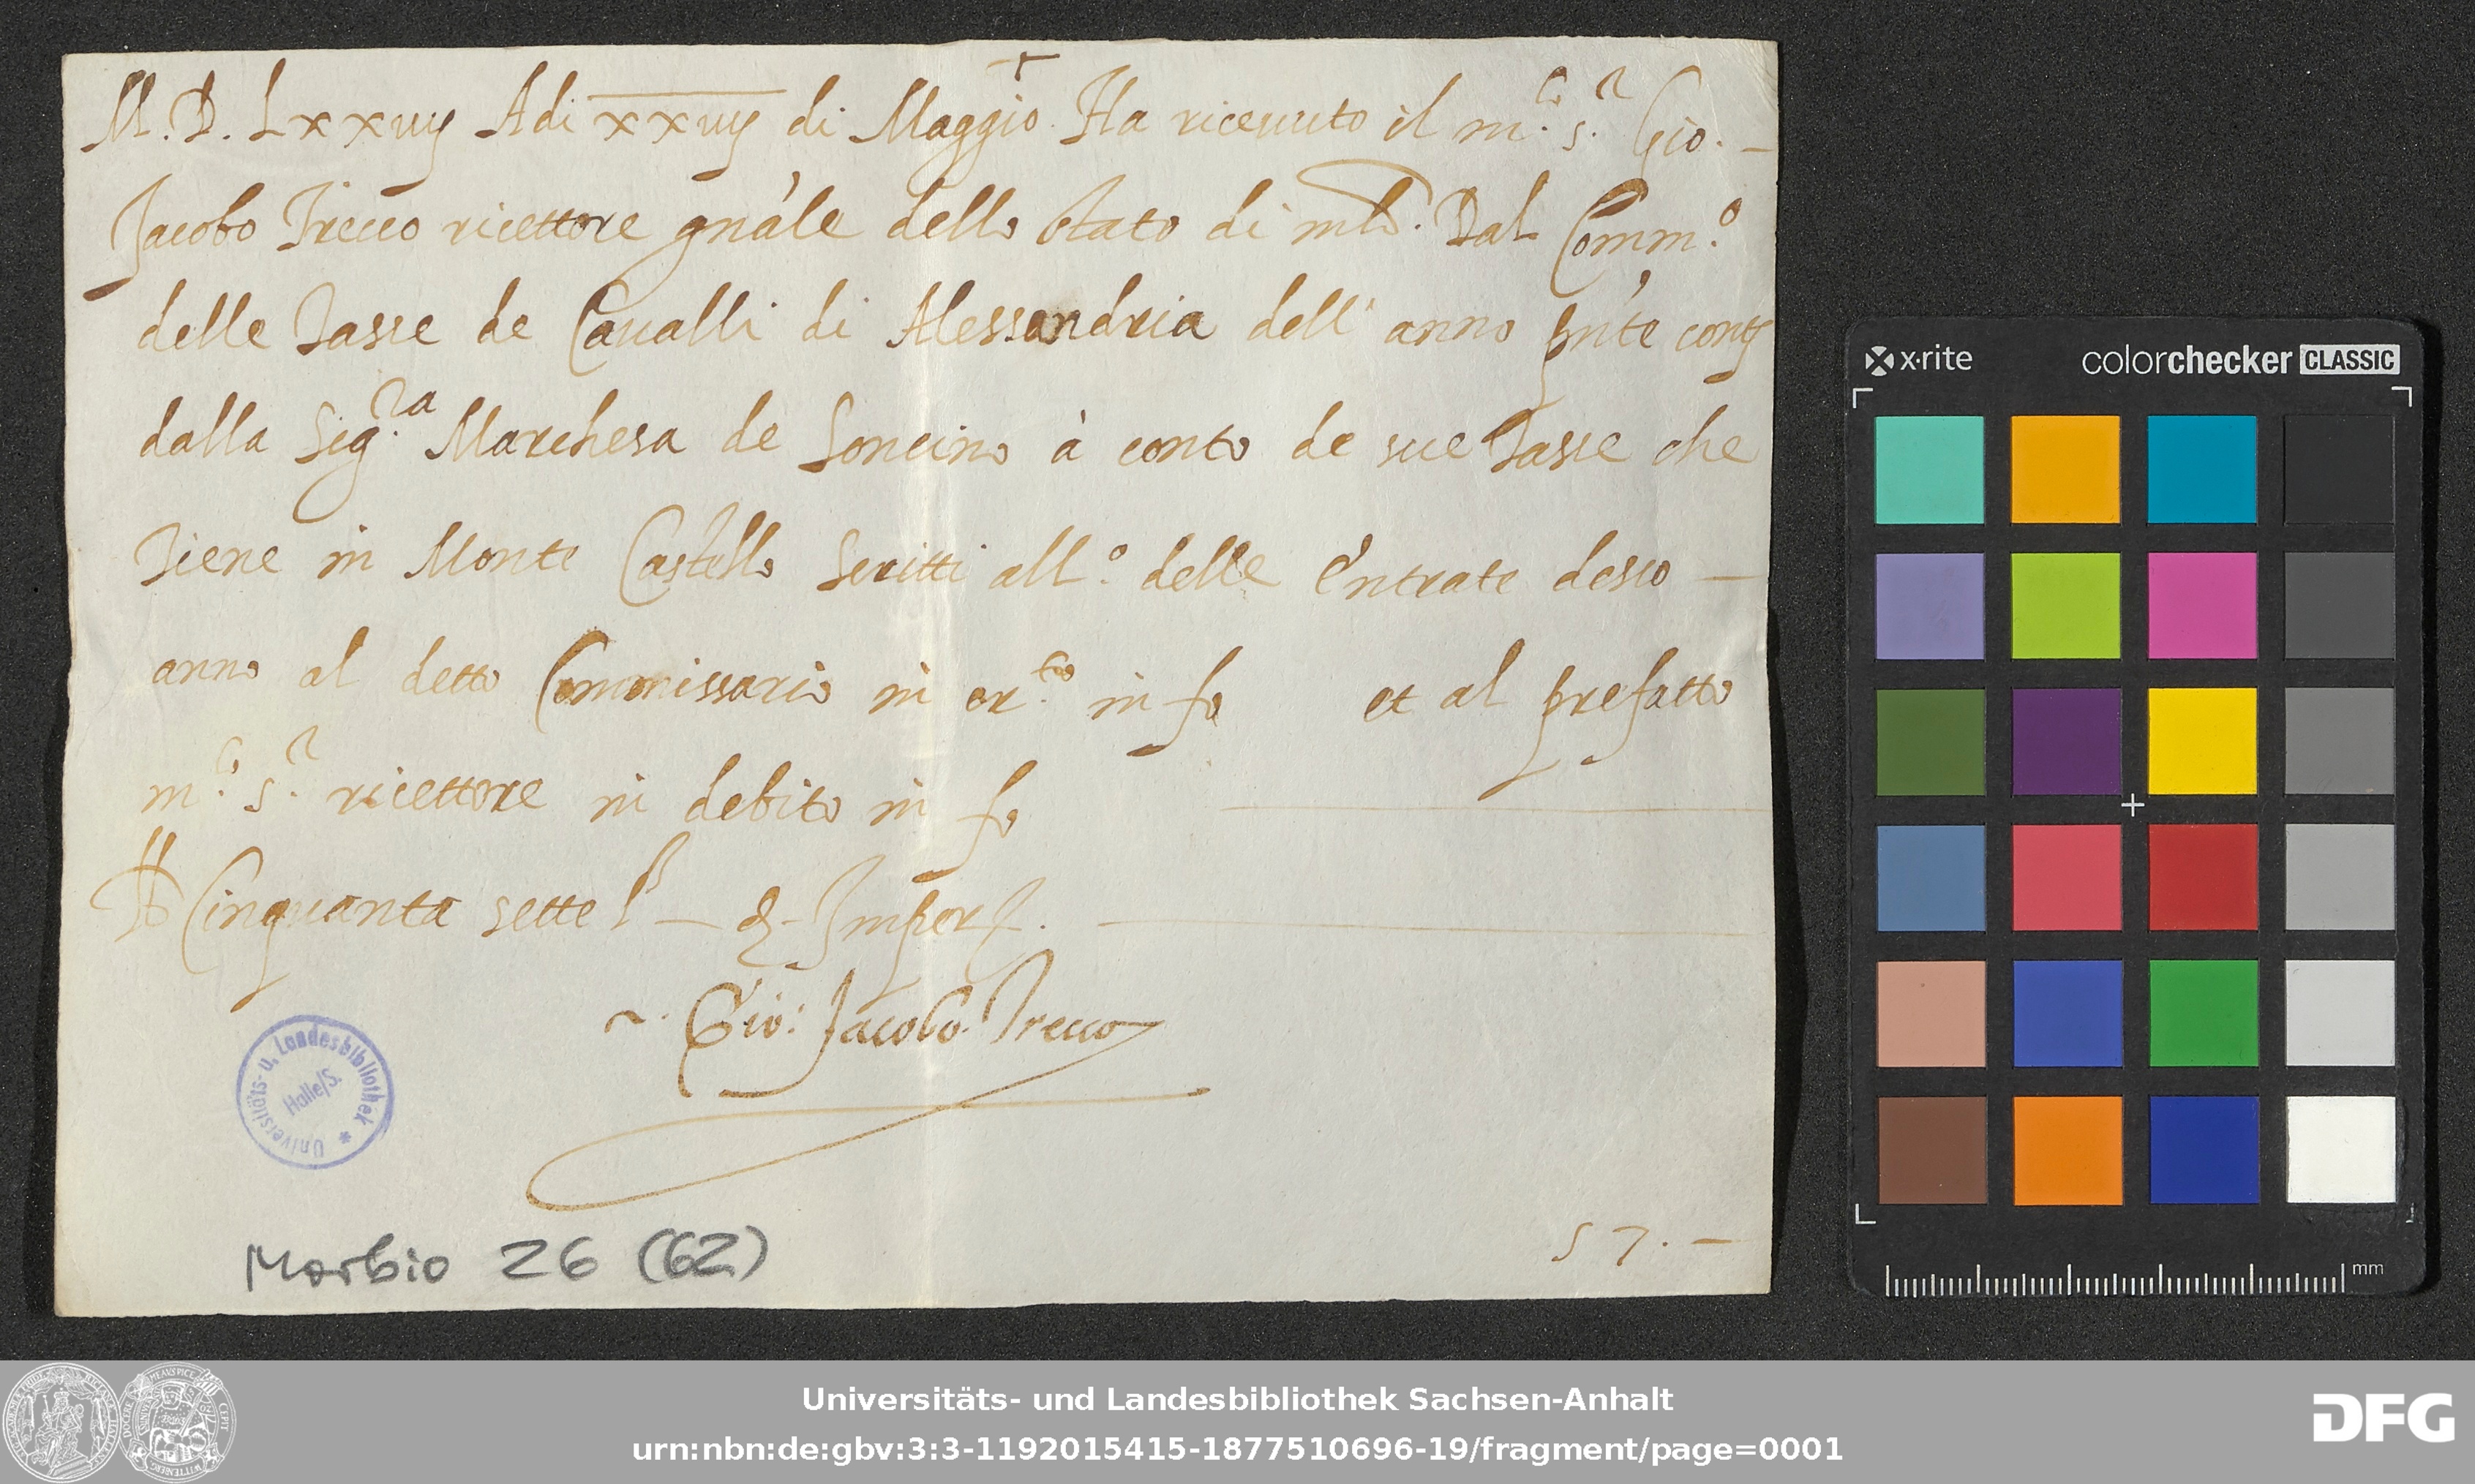 M.D.Lxxvij Adi xxvij di Maggio. Ha riceuuto il m.co s.r Gio. –
Jacobo Trecco ricettore gnále dello stato di mlo. Dal Comm.o
delle Tasse de Caualli di Alessandria dell' anno pnte
dalla Sig.ra Marchesa de Soncino à conto de sue Tasse che
Tiene in Monte Castello Scritti all.o delle Entrate desso —
anno al detto Commissario in cr.to in fo et al prefatto
m.co s.r ricettore in debito in fo
Cinquanta sette s — d – Imper
Gio: Jacobo Trecco
57. –
Universitäts- u. Landesbibliothek * Halle/S.
Morbio 26 (62)
x·rite colorchecker CLASSIC
mm
Universitäts- und Landesbibliothek Sachsen-Anhalt
urn:nbn:de:gbv:3:3-1192015415-1877510696-19/fragment/page=0001
DFG